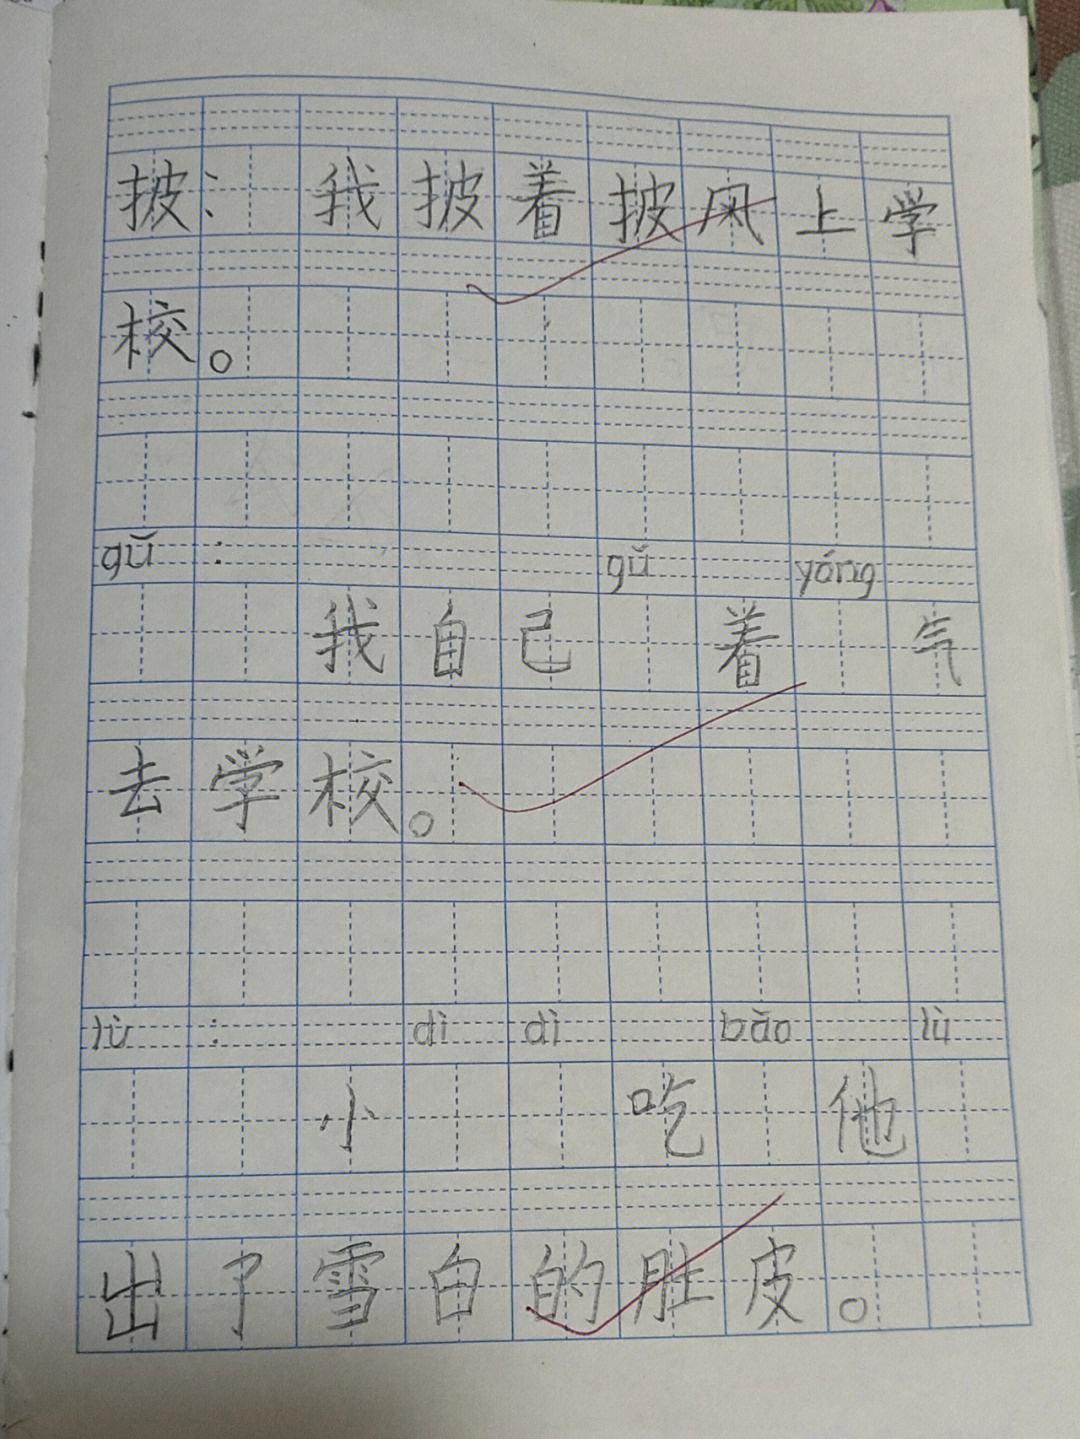 披：我披着披风上学
校。
gǔ ： gǔ yóng
我自己 着 气
去学校。
lù ： dì dì bǎo lù
小 吃 他
出了雪白的肚皮。